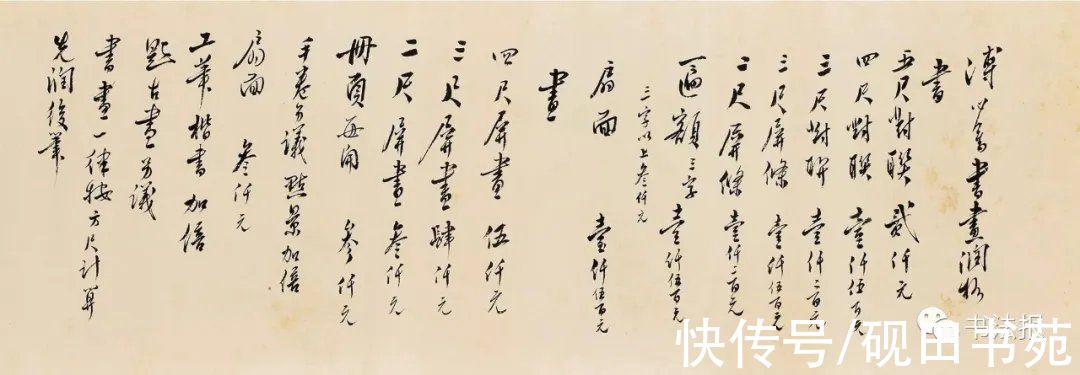 溥心畬書畫潤格
書
五尺對聯 貳仟元
四尺對聯 壹仟伍百元
三尺對聯 壹仟二百元
三尺屏條 壹仟伍百元
二尺屏條 壹仟二百元
匾額 三字 壹仟伍百元
三字以上叁仟元
扇面 壹仟伍百元
畫
四尺屏畫 伍仟元
三尺屏畫 肆仟元
二尺屏畫 叁仟元
冊頁每開 叁仟元
手卷另議 點景加倍
扇面 叁仟元
工筆楷書加倍
題古畫另議
書畫一律按方尺計算
先潤後筆
书法报
快传号/砚田书苑